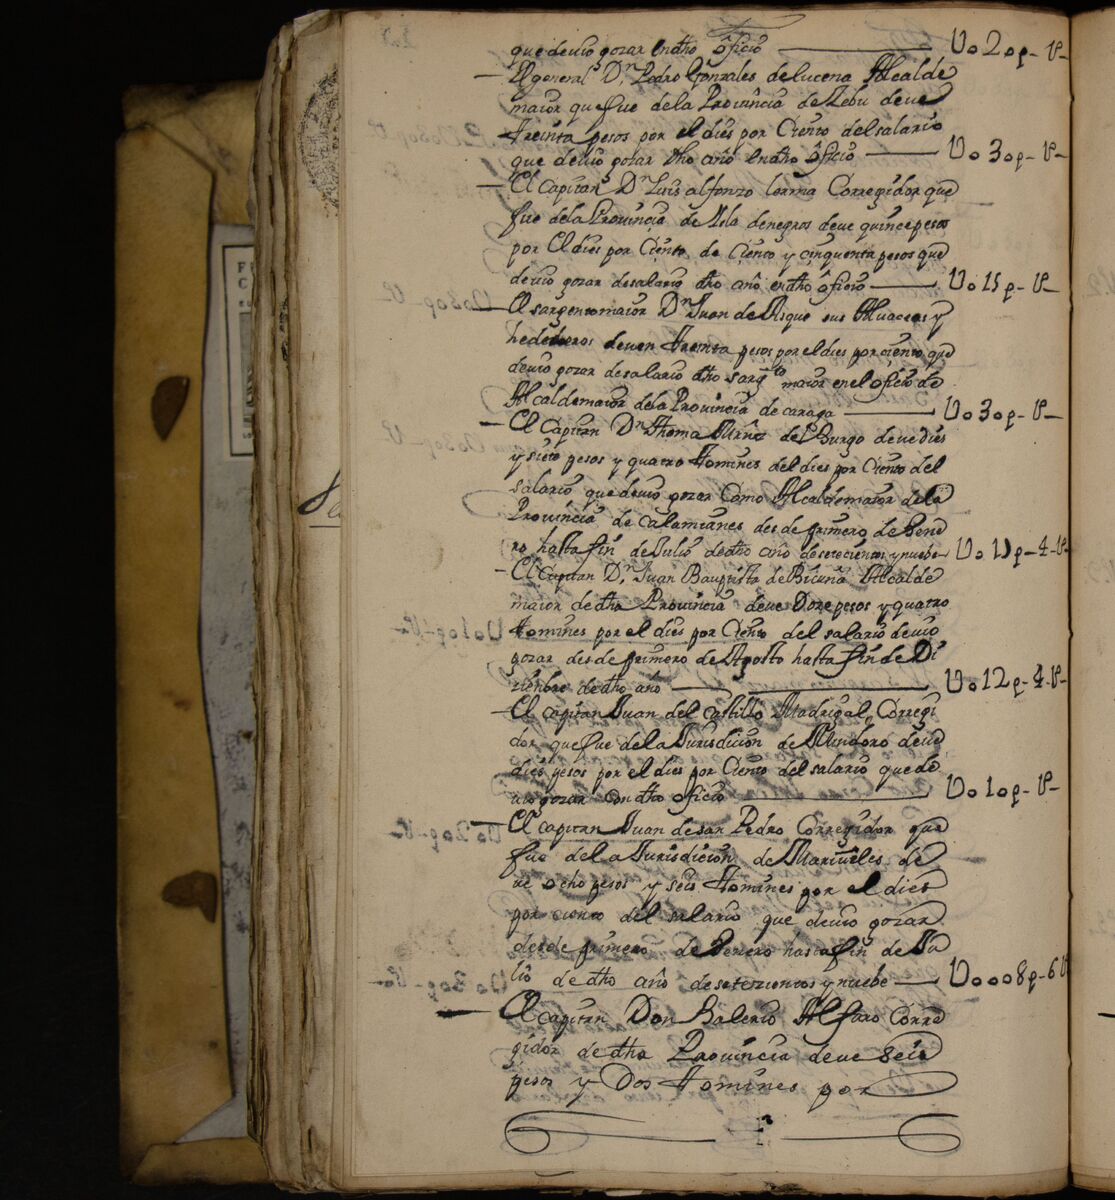 que devio gozar en dho oficio — U o 20 p - U
— El general Dn Pedro Gonzales de lucena Alcalde
maior que fue de la Provincia de Zebu deve
treinta pesos por el dies por Ciento del salario
que devio gozar dho año en dho oficio — U o 30 p - U
— El capitan Dn Luis alfonzo lerma Corregidor que
fue de la Provincia de Isla de negros deve quince pesos
por El dies por Ciento de Ciento y cinquenta pesos que
devio gozar de salario dho año en dho oficio — U o 15 p - U
— El sargento maior Dn Juan de sus Alvaceas y
herederos deven treinta pesos por el dies por ciento que
devio gozar de salario dho sargto maior en el oficio de
Alcalde maior de la Provincia de caraga — U o 30 p - U
— El Capitan Dn Thoma Muñoz del Burgo deve dies
y siete pesos y quatro tomines del dies por Ciento del
salario que devio gozar como Alcalde maior de la
Provincia de calamianes desde primero de Hene
ro hasta fin de Julio de dho año de setecientos y nuebe — U o 17 p - 4 - U
— El Capitan Dn Juan Bauptista de Bicuña Alcalde
maior de dha Provincia deve Doze pesos y quatro
tomines por el dies por Ciento del salario devio
gozar desde primero de Agosto hasta fin de Di
ziembre de dho año — U o 12 p - 4 - U
— El capitan Juan del castillo Madrigal Corregi
dor que fue de la Jurisdicion de Mindoro deve
dies pesos por el dies por Ciento del salario que de
vio gozar con dho oficio — U o 10 p - U
— El capitan Juan de san Pedro Corregidor que
fue de la Jurisdicion de Mariveles de
ve ocho pesos y seis tomines por el dies
por ciento del salario que devio gozar
desde primero de Henero hasta fin de Ju
lio de dho año de setezientos y nuebe — U o o o 8 p - 6 U
— El capitan Don Balerio Alfaro Corre
gidor de dha Provincia deve seis
pesos y Dos tomines por